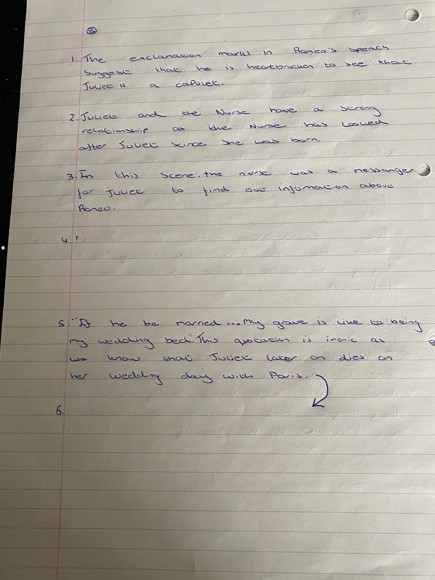 1. The exclamation marks in Romeo's speech
suggest that he is heartbroken to see that
Juliet is a capulet.
2. Juliet and the Nurse have a strong
relationship as the Nurse has looked
after Juliet since she was born.
3. In this scene, the nurse was a messanger
for Juliet to find out infomation about
Romeo.
4. ?
5. "If he be married... My grave is like to being
my wedding bed". This quotation is ironic as
we know that Juliet later on dies on
her wedding day with Paris.
6.